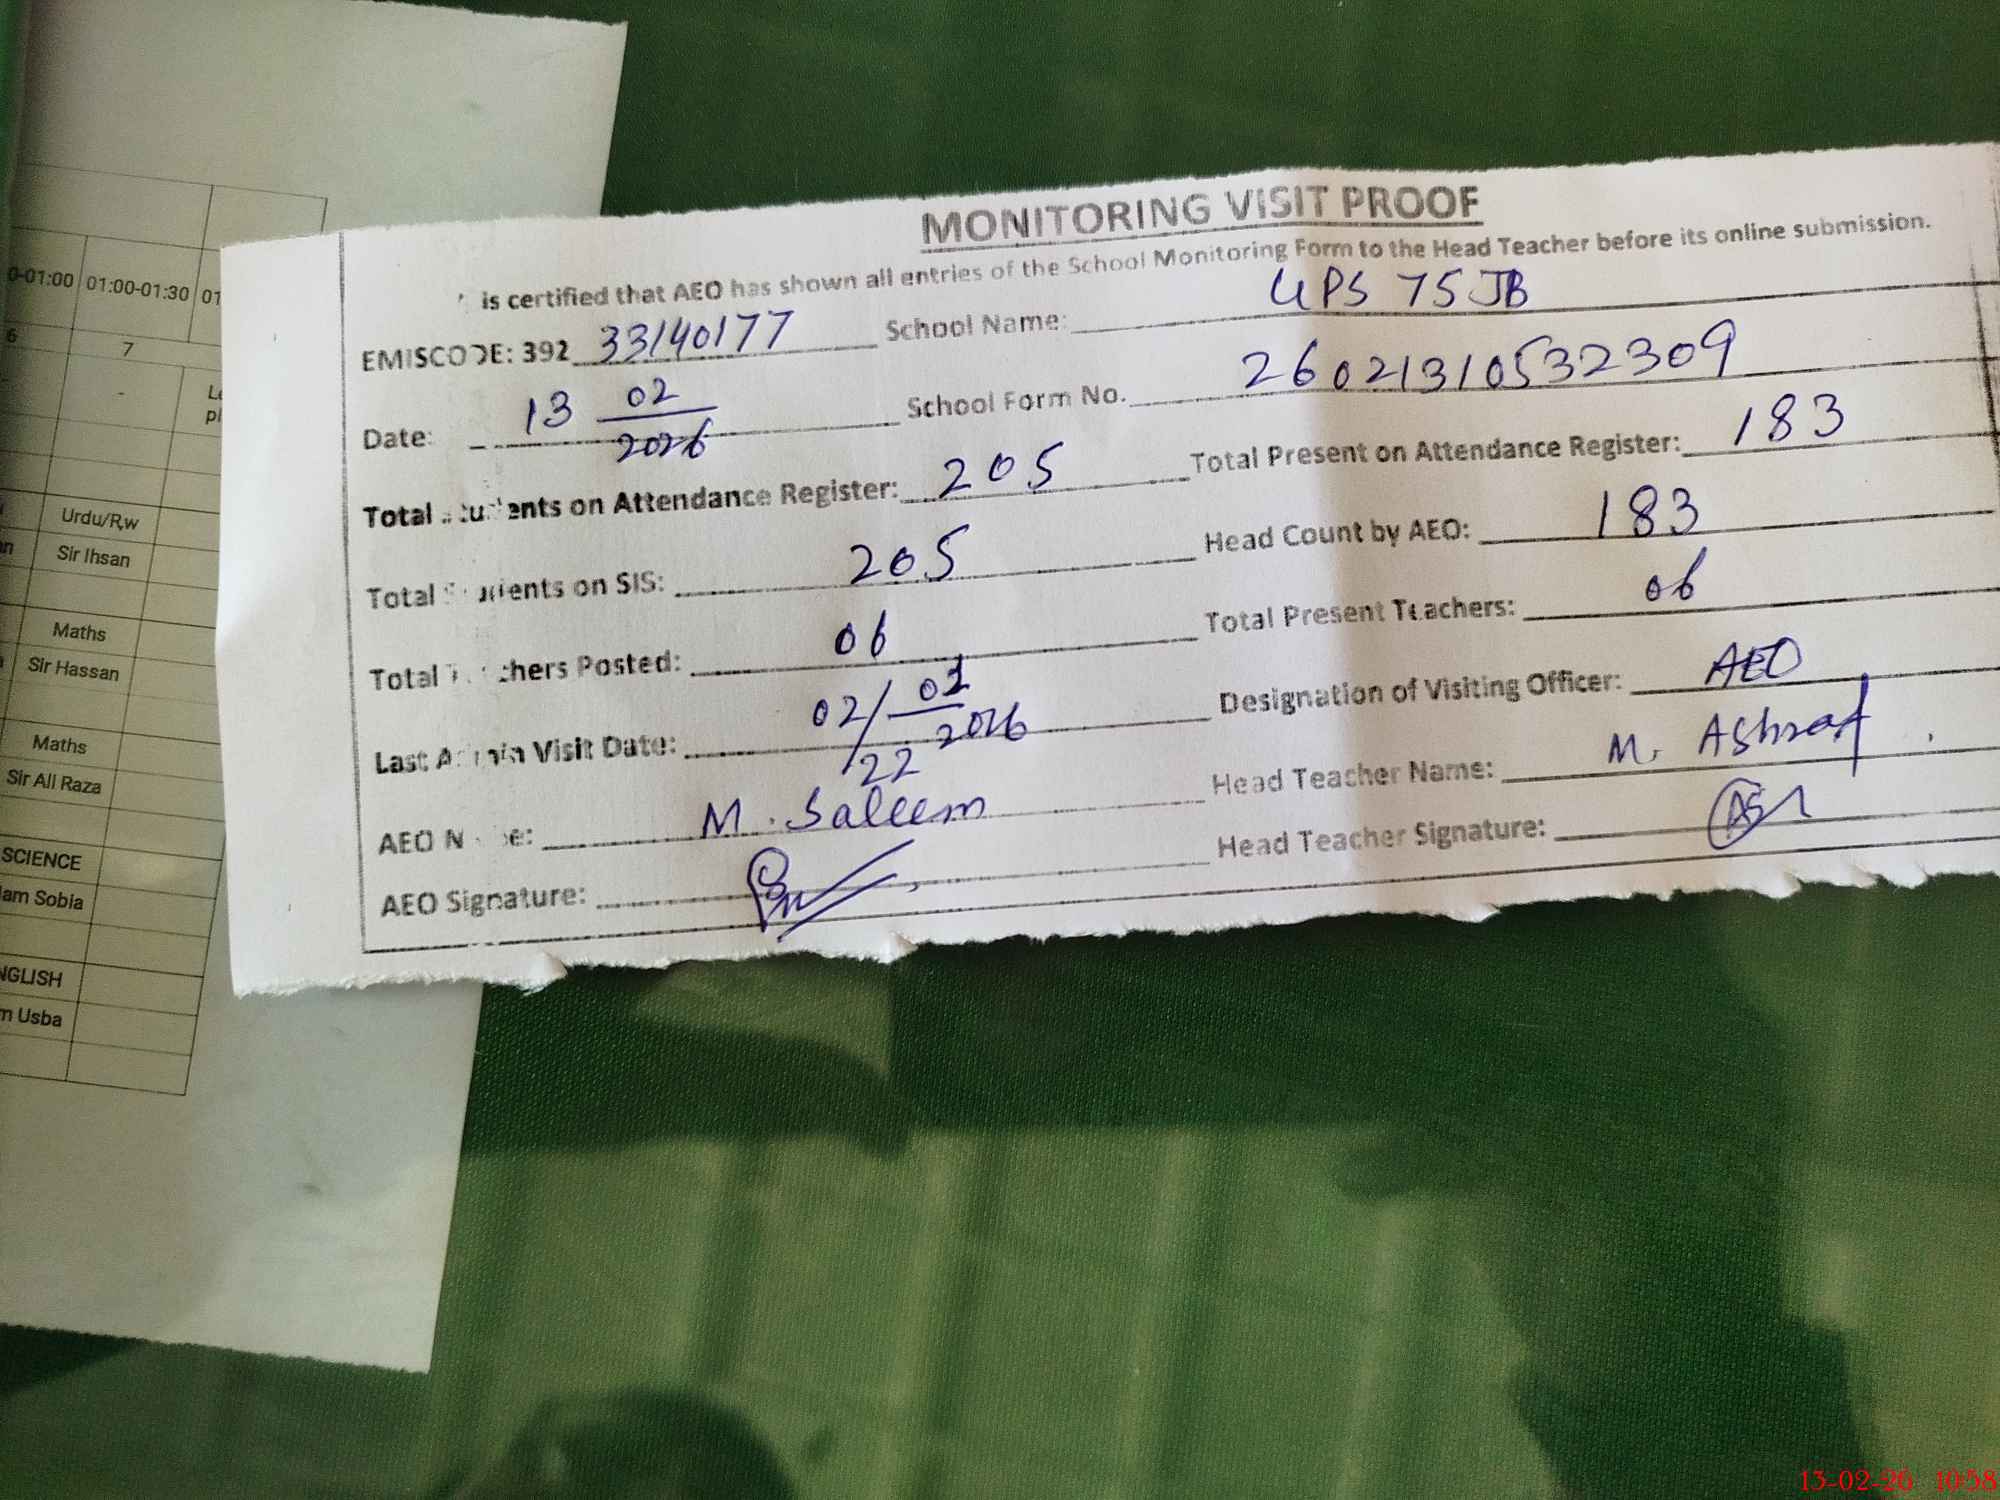 0-01:00 01:00-01:30 01
6 7
- Le
pl
Urdu/R,w
an Sir Ihsan
Maths
Sir Hassan
Maths
Sir Ali Raza
SCIENCE
am Sobia
NGLISH
m Usba
MONITORING VISIT PROOF
is certified that AEO has shown all entries of the School Monitoring Form to the Head Teacher before its online submission.
EMISCODE: 392 33140177 School Name: GPS 75 JB
Date: 13 02/2026 School Form No. 26021310532309
Total Students on Attendance Register: 205 Total Present on Attendance Register: 183
Total Students on SIS: 205 Head Count by AEO: 183
Total Teachers Posted: 06 Total Present Teachers: 06
Last Admin Visit Date: 02/ 2026 22 Designation of Visiting Officer: AEO
AEO Name: M. Saleem Head Teacher Name: M. Ashraf
AEO Signature: Head Teacher Signature:
13-02-26 10:58